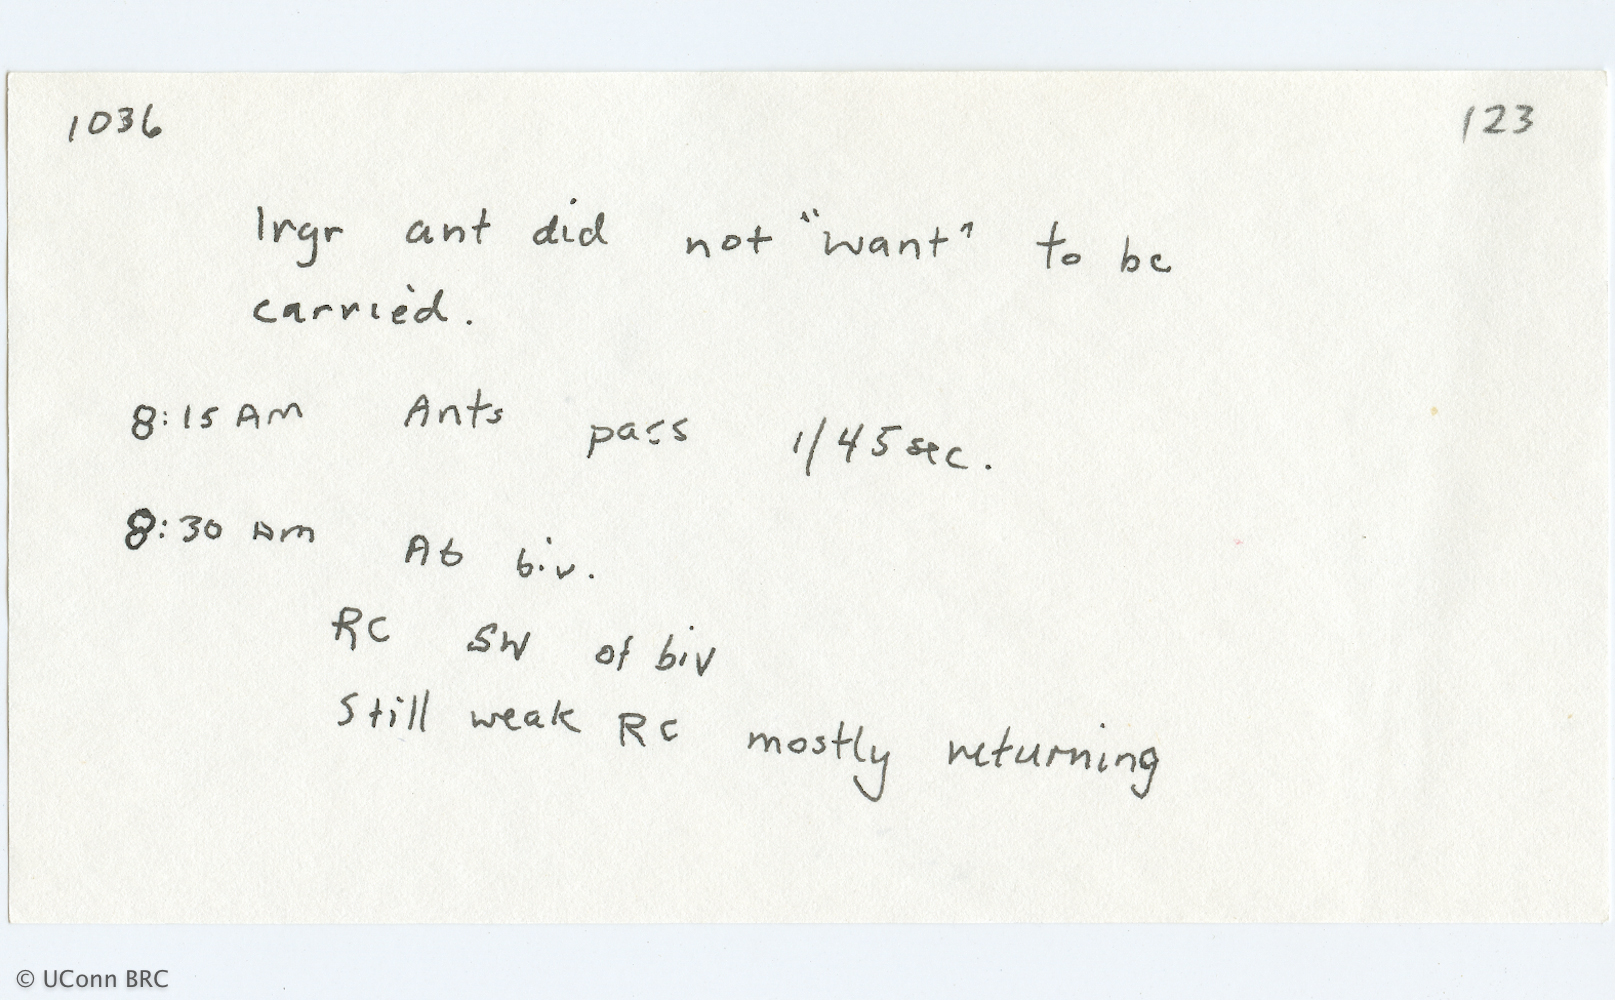 1036 123
lrgr ant did not "want" to be
carried.
8:15 AM Ants pass 1/45 sec.
8:30 AM At biv.
RC SW of biv
Still weak RC mostly returning
© UConn BRC